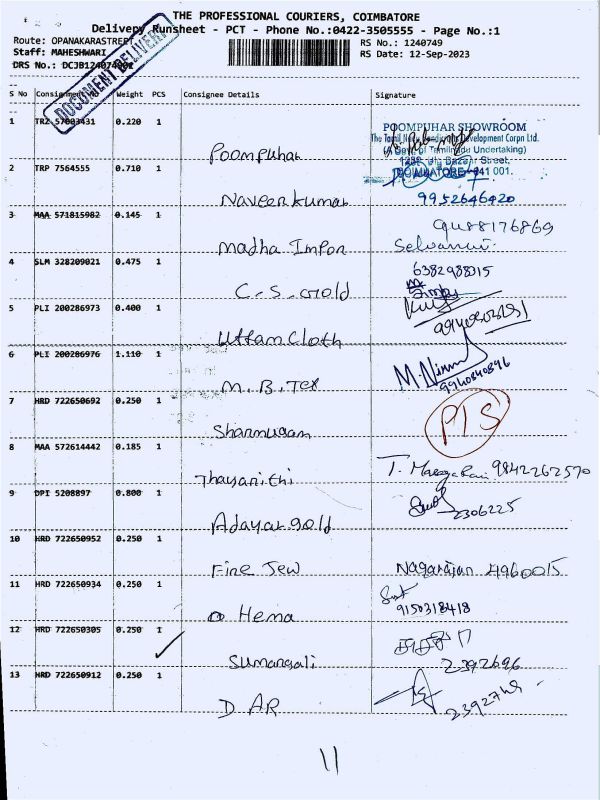 THE PROFESSIONAL COURIERS, COIMBATORE
Delivery Runsheet - PCT - Phone No.:0422-3505555 - Page No.:1
Route: OPANAKARASTREET RS No.: 1240749
Staff: MAHESHWARI RS Date: 12-Sep-2023
DRS No.: DCJB1240749
DOCUMENT DELIVERY
S No Consignment Weight PCS Consignee Details Signature
1 TRZ 57003431 0.220 1 POOMPUHAR SHOWROOM
Development Corpn Ltd.
Undertaking)
Street,
COIMBATORE-641 001.
Poompuhar
2 TRP 7564555 0.710 1
Naveen kumar 9952646420
3 MAA 571815982 0.145 1 9488176869
Madha Impor Selvamani
4 SLM 328209021 0.475 1 6382988315
C.S. Gold
5 PLI 200286973 0.400 1
Uttam Cloth
6 PLI 200286976 1.110 1
M.B. Tex 9940840896
7 HRD 722650692 0.250 1 PTS
Shanmugam
8 MAA 572614442 0.185 1
Thayanithi 9842262570
9 DPI 5208897 0.800 1
Adayar gold 2306225
10 HRD 722650952 0.250 1
Fine Jew Nagarajan 4960015
11 HRD 722650934 0.250 1
Hema 9150318418
12 HRD 722650305 0.250 1
Sumangali 2392696
13 HRD 722650912 0.250 1
D AR
11